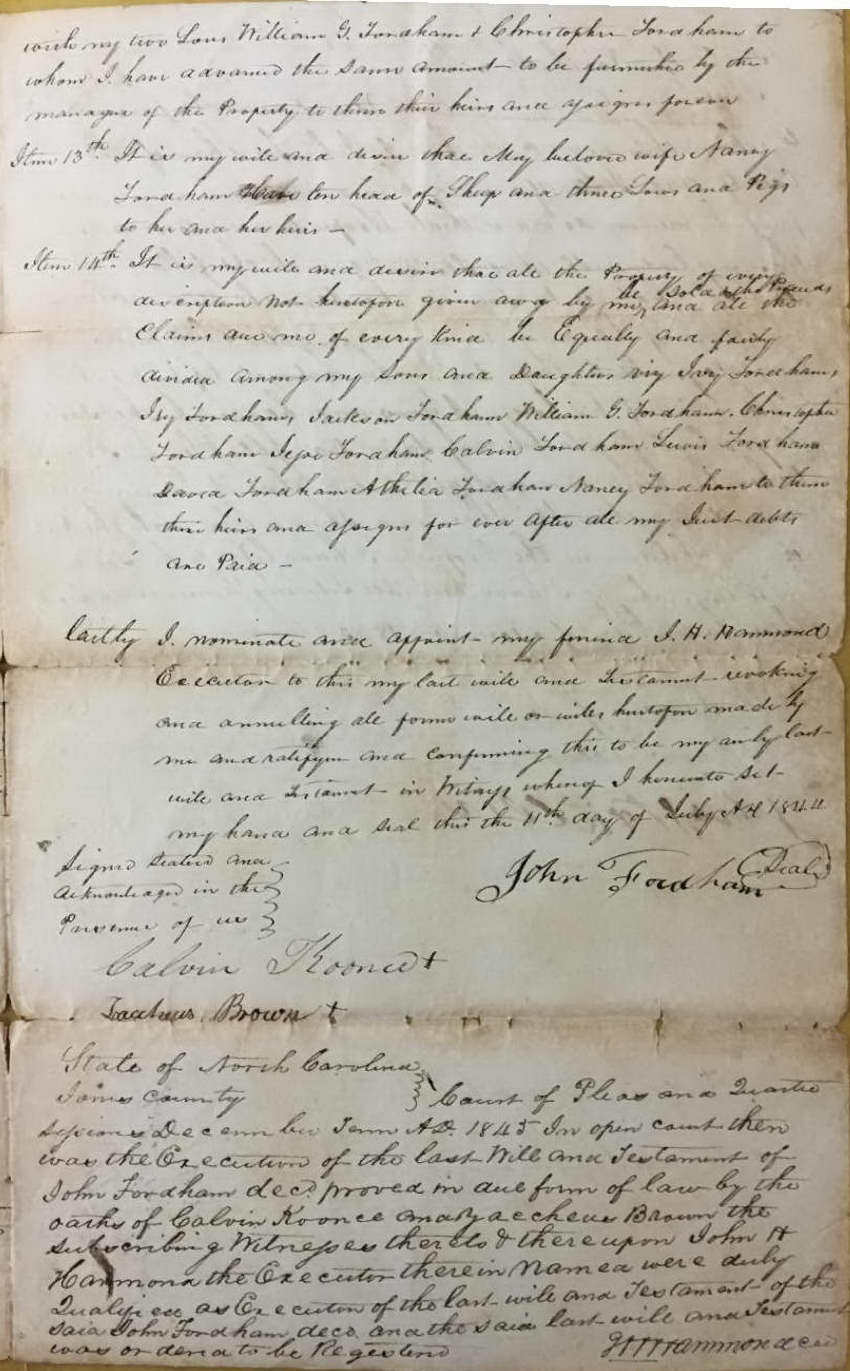 with my two Sons William G. Fordham & Christopher Fordham to
whom I have advanced the same amount to be furnished by the
manager of the Property to them their heirs and assigns forever
Item 13th It is my will and desire that My beloved wife Nancy
Fordham Have ten head of Sheep and three Sows and Pigs
to her and her heirs —
Item 14th It is my will and desire that all the Property of every
be Sold & the Proceeds
description not heretofore given away by me, and all the
Claims due me of every Kind be Equally and fairly
divided among my Sons and Daughters viz Ivey Fordham,
Icy Fordham, Jackson Fordham William G. Fordham. Christopher
Fordham Jesse Fordham Calvin Fordham Lewis Fordham
David Fordham Athelia Fordham Nancy Fordham to them
their heirs and assigns for ever after all my Just debts
are Paid —
lastly I. nominate and appoint my friend J. H. Hammond
Executor to this my last will and Testament revoking
and annulling all former will or wills heretofore made by
me and ratifying and confirming this to be my only last
will and Testament in Witness whereof I hereunto Set
my hand and Seal this the 11th day of July AD 1844
Signed Sealed and
Acknowledged in the
Presence of us
John Fordham (Seal)
Calvin Koonce +
Zacheus Brown +
State of North Carolina
Jones County
Court of Pleas and Quarter
Sessions December Term AD. 1845 In open court then
was the Execution of the last Will and Testament of
John Fordham decd. proved in due form of law by the
oaths of Calvin Koonce and Zaccheus Brown the
Subscribing Witnesses thereto & thereupon John H
Hammond the Executor therein Named were duly
Qualified as Executor of the last will and Testament of the
said John Fordham decd. and the said last will and Testament
was ordered to be Registered
JHHammond